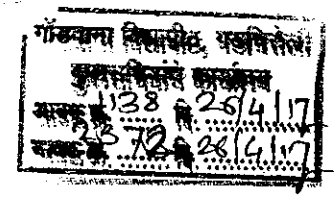 गोंडवाना विद्यापीठ, गडचिरोली
कुलसचिवांचे कार्यालय
आवक क्र. 1138 दि. 26/4/17
जावक क्र. 2372 दि. 26/4/17